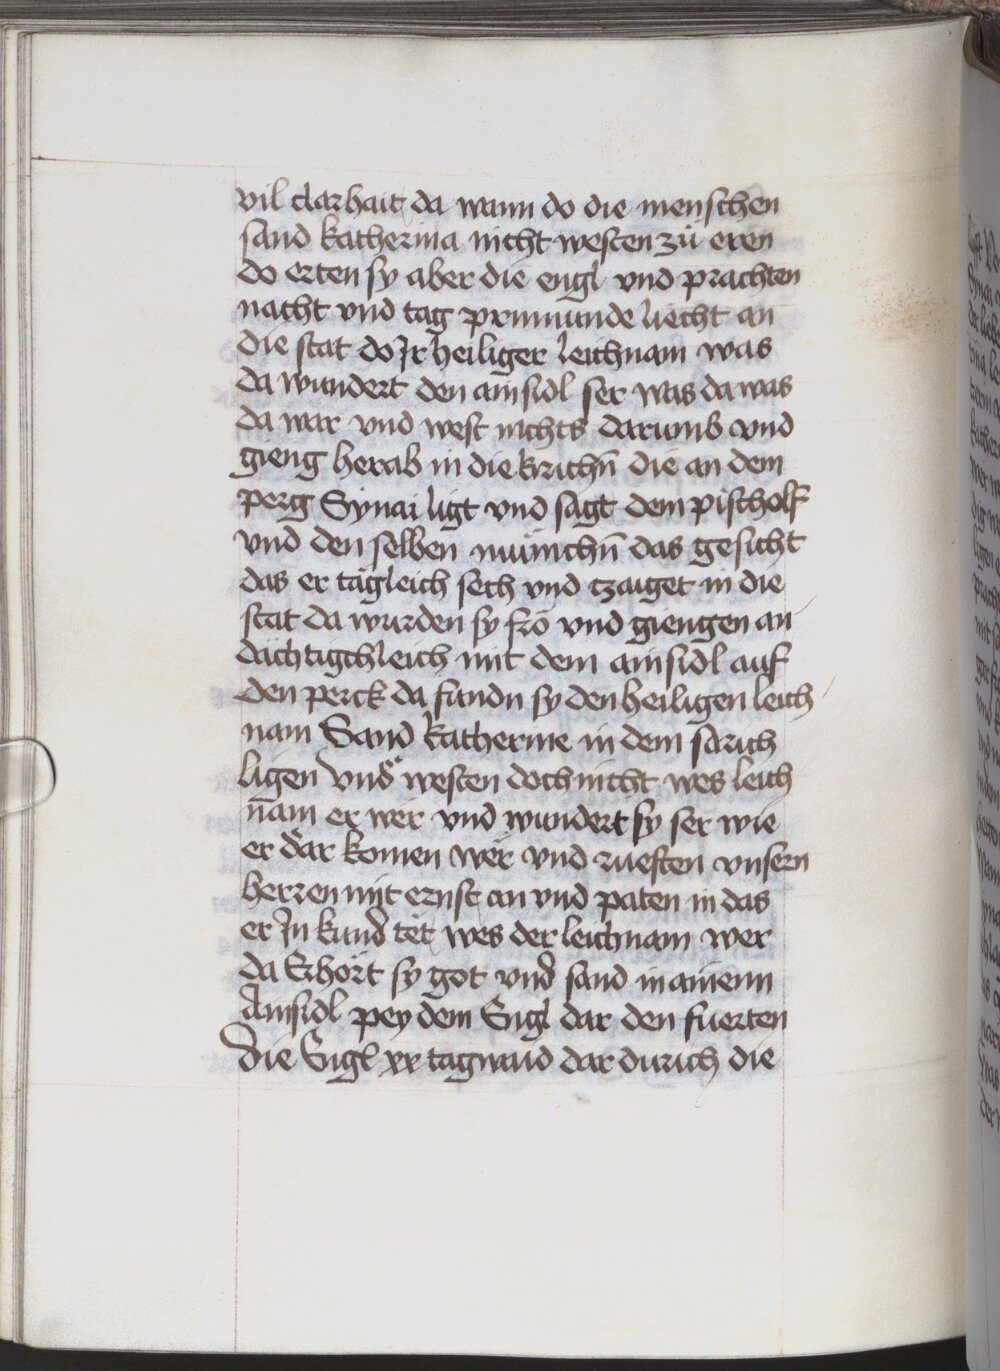 vil clarhait da wann do die menschen
sand katherina nicht westen zů eren
do erten sy aber die engl vnd prachten
nacht vnd tag prinnunde liecht an
die stat do Jr heiliger leichnam was
da wundert den ainsidl ser was da was
da war vnd west nichts darumb vnd
gieng herab in die kirichn̄ die an dem
perg Synai ligt vnd sagt dem pischolf
vnd den selben münichn̄ das gesicht
das er tägleich sech vnd tzaiget in die
stat da wurden sy fro vnd giengen an
dächtigchleich mit dem ainsidl auf
den perck da fundn sy den heiligen leich
nam Sand katherine in dem sarich
ligen vnd westen doch nicht wes leich
nam er wer vnd wundert sy ser wie
er dar komen wer vnd ruesten vnsern
herren mit ernst an vnd paten in das
er Jn kund tët wes der leichnam wer
da Erhört sy got vnd sand in ainenn
Ainsidl pey dem Engl dar den fuerten
Die Engl xx tagwaid dar durich die